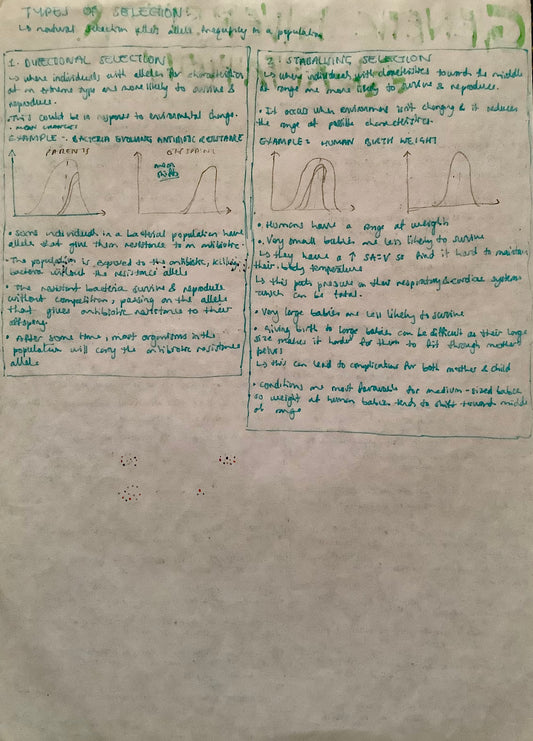 TYPES OF SELECTION:
↳ natural selection affects allele frequency in a population
1. DIRECTIONAL SELECTION
↳ where individuals with alleles for characteristics
of an extreme type are more likely to survive &
reproduce.
• This could be in response to environmental change.
• mean
EXAMPLE:- BACTERIA EVOLVING ANTIBIOTIC RESISTANCE
PARENTS
OFFSPRING
• Some individuals in a bacterial population have
alleles that give them resistance to an antibiotic.
• The population is exposed to the antibiotic, killing
bacteria without the resistance allele
• The resistant bacteria survive & reproduce
without competition, passing on the allele
that gives antibiotic resistance to their
offspring.
• After some time, most organisms in the
population will carry the antibiotic resistance
allele
2. STABALISING SELECTION
↳ where individuals with characteristics towards the middle
of range are more likely to survive & reproduce.
• It occurs when environment isn't changing & it reduces
the range of possible characteristics.
EXAMPLE: HUMAN BIRTH WEIGHT
• Humans have a range of weights
• Very small babies are less likely to survive
↳ they have a ↑ SA:V so find it hard to maintain
their body temperature
↳ this puts pressure on their respiratory & cardiac systems
which can be fatal.
• Very large babies are less likely to survive
• Giving birth to large babies can be difficult as their large
size makes it harder for them to fit through mother's
pelvis
↳ this can lead to complications for both mother & child
• Conditions are most favourable for medium-sized babies
so weight of human babies tends to shift towards middle
of range